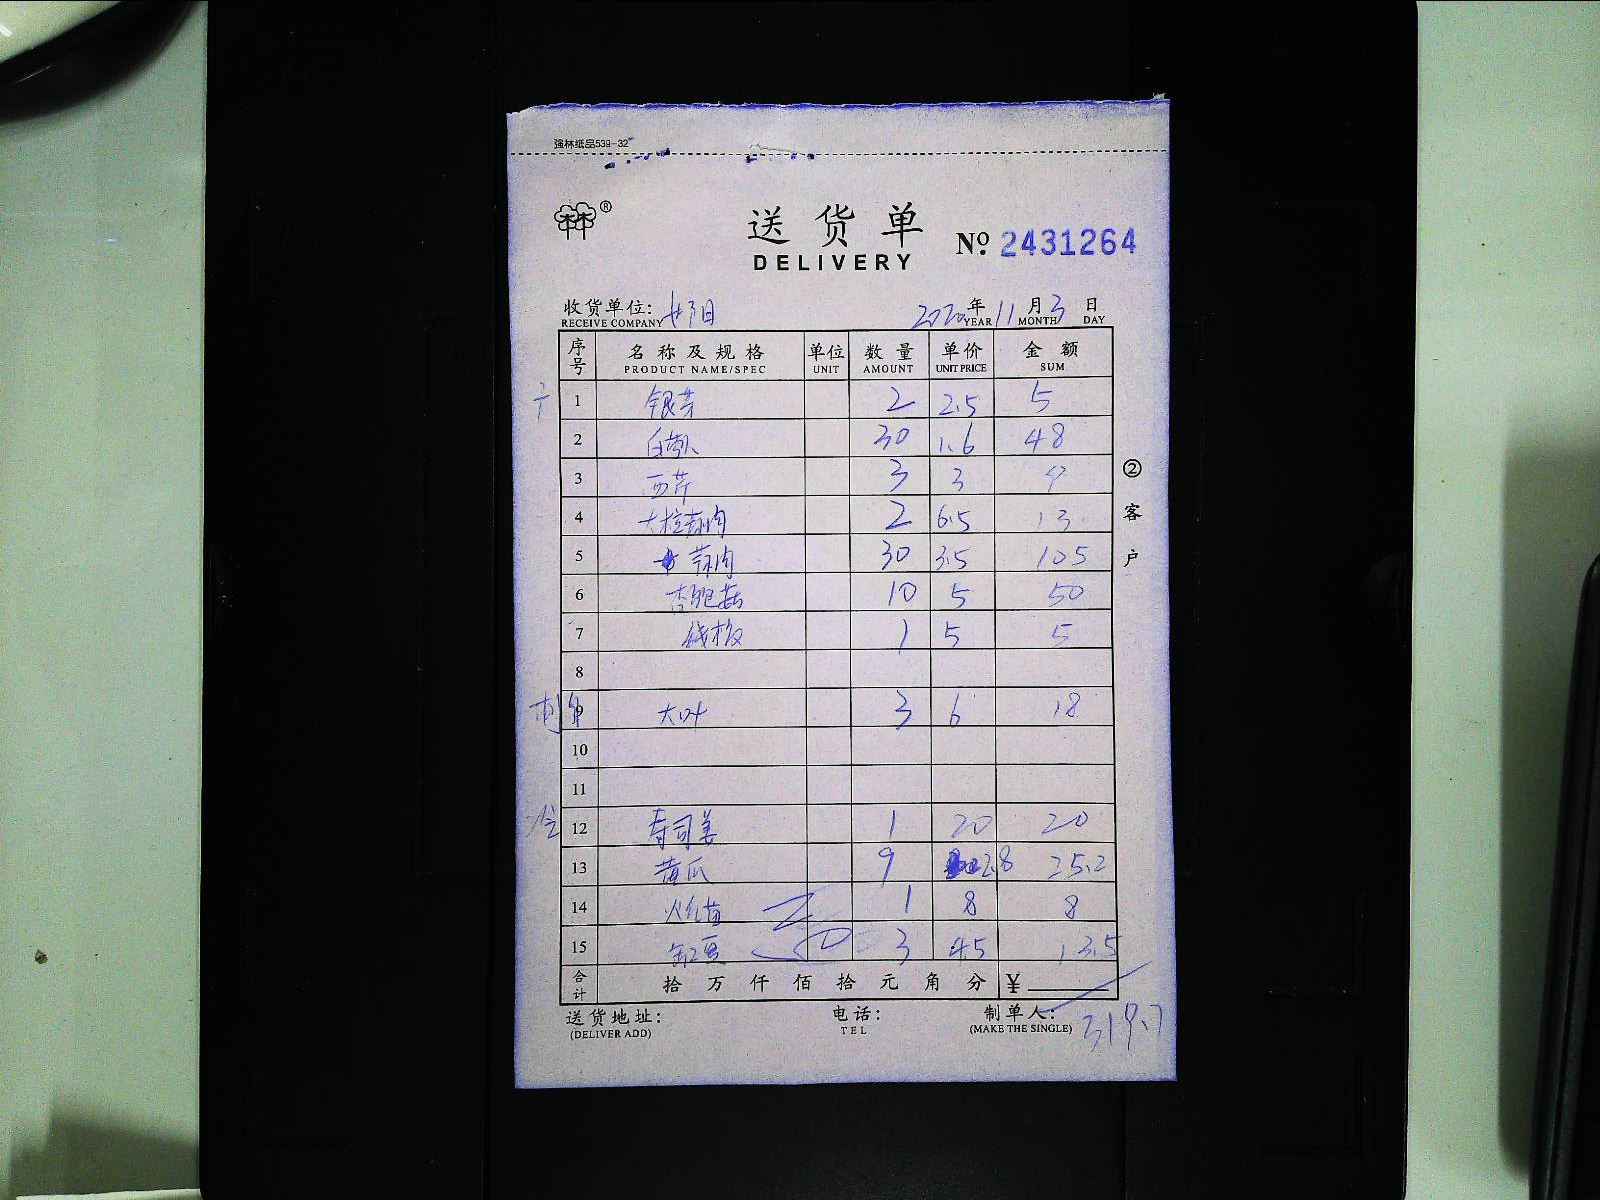 强林纸品539-32
®
送货单
DELIVERY
Nº 2431264
收货单位:
RECEIVE COMPANY
2020年11月3日
YEAR MONTH DAY
序号 名称及规格 单位 数量 单价 金额
PRODUCT NAME/SPEC UNIT AMOUNT UNIT PRICE SUM
1 银芽 2 2.5 5
2 30 1.6 48
3 西芹 3 3 9
4 大粒蒜肉 2 6.5 13
5 蒜肉 30 3.5 105
6 杏鲍菇 10 5 50
7 1 5 5
8
9 大叶 3 6 18
10
11
12 寿司姜 1 20 20
13 黄瓜 9 2.8 25.2
14 1 8 8
15 豆 3 4.5 13.5
合计 拾万仟佰拾元角分 ¥
送货地址: 电话: 制单人:
(DELIVER ADD) TEL (MAKE THE SINGLE)
319.7
②客户